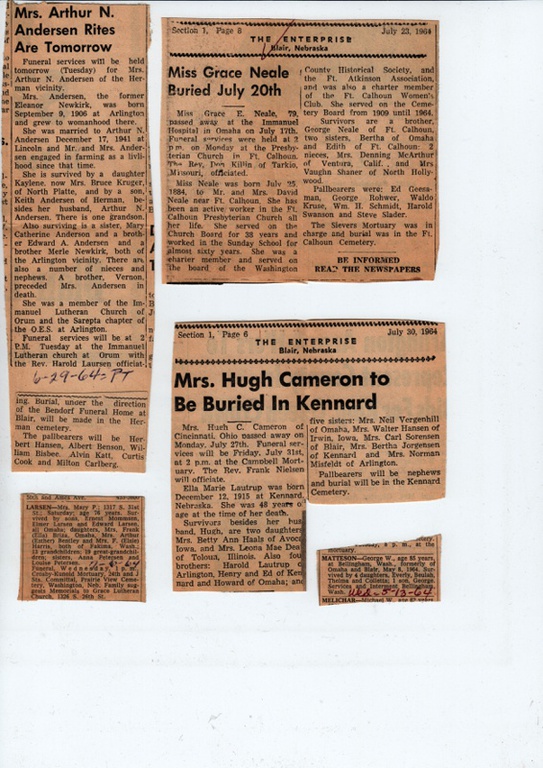 Mrs. Arthur N.
Andersen Rites
Are Tomorrow
Funeral services will be held
tomorrow (Tuesday) for Mrs.
Arthur N. Andersen of the Her-
man vicinity.
Mrs. Andersen, the former
Eleanor Newkirk, was born
September 9, 1906 at Arlington
and grew to womanhood there.
She was married to Arthur N.
Andersen December 17, 1941 at
Lincoln and Mr. and Mrs. Ander-
sen engaged in farming as a livli-
hood since that time.
She is survived by a daughter
Kaylene, now Mrs. Bruce Kruger,
of North Platte, and by a son,
Keith Andersen of Herman, be-
sides her husband, Arthur N.
Andersen. There is one grandson.
Also surviving is a sister, Mary
Catherine Andersen and a broth-
er Edward A. Andersen and a
brother Merle Newkirk, both of
the Arlington vicinity. There are
also a number of nieces and
nephews. A brother, Vernon,
preceded Mrs. Andersen in
death.
She was a member of the Im-
manuel Lutheran Church of
Orum and the Sarepta chapter of
the O.E.S. at Arlington.
Funeral services will be at 2
P.M. Tuesday at the Immanuel
Lutheran church at Orum with
the Rev. Harold Laursen officiat-
6-29-64-PT
ing. Burial, under the direction
of the Bendorf Funeral Home at
Blair, will be made in the Her-
man cemetery.
The pallbearers will be Her-
bert Hansen, Albert Benson, Wil-
liam Bisbee, Alvin Katt, Curtis
Cook and Milton Carlberg.
LARSEN—Mrs. Mary P.; 1317 S. 31st
St.; Saturday; age 78 years. Sur-
vived by sons, Ernest Mommsen,
Elmer Larsen and Edward Larsen,
all Omaha; daughters, Mrs. Frank
(Ella) Brida, Omaha, Mrs. Arthur
(Esther) Bentley and Mrs. F. (Elsie)
Harris, both of Pakima, Wash.
13 grandchildren; 19 great-grandchil-
dren; sisters, Anna Petersen and
Louise Petersen.
Funeral, Wednesday
Crosby-Kunold Mortuary, 24th and
Sts. Committal, Prairie View Ceme-
tery, Washington, Neb. Family sug-
gests Memorials to Grace Lutheran
Church, 1326 S. 26th St.
Section 1, Page 8 July 23, 1964
THE ENTERPRISE
Blair, Nebraska
Miss Grace Neale
Buried July 20th
Miss Grace E. Neale, 79,
passed away at the Immanuel
Hospital in Omaha on July 17th.
Funeral services were held at 2
p.m. on Monday at the Presby-
terian Church in Ft. Calhoun.
The Rev. Don Killin of Tarkio,
Missouri, officiated.
Miss Neale was born July 25,
1884, to Mr. and Mrs. David
Neale near Ft. Calhoun. She has
been an active worker in the Ft.
Calhoun Presbyterian Church all
her life. She served on the
Church Board for 38 years and
worked in the Sunday School for
almost sixty years. She was a
charter member and served on
The board of the Washington
County Historical Society, and
the Ft. Atkinson Association,
and was also a charter member
of the Ft. Calhoun Women's
Club. She served on the Ceme-
tery Board from 1909 until 1964.
Survivors are a brother,
George Neale of Ft. Calhoun,
two sisters, Bertha of Omaha
and Edith of Ft. Calhoun; 2
nieces, Mrs. Denning McArthur
of Ventura, Calif., and Mrs.
Vaughn Shaner of North Holly-
wood.
Pallbearers were: Ed Geesa-
man, George Rohwer, Waldo
Kruse, Wm. H. Schmidt, Harold
Swanson and Steve Slader.
The Sievers Mortuary was in
charge and burial was in the Ft.
Calhoun Cemetery.
BE INFORMED
READ THE NEWSPAPERS
Section 1, Page 6 July 30, 1964
THE ENTERPRISE
Blair, Nebraska
Mrs. Hugh Cameron to
Be Buried In Kennard
Mrs. Hugh C. Cameron of
Cincinnati, Ohio passed away on
Monday, July 27th. Funeral ser-
vices will be Friday, July 31st,
at 2 p.m. at the Campbell Mort-
uary. The Rev. Frank Nielsen
will officiate.
Ella Marie Lautrup was born
December 12, 1915 at Kennard,
Nebraska. She was 48 years o
age at the time of her death.
Survivors besides her hus
band, Hugh, are two daughters
Mrs. Betty Ann Haals of Avoca
Iowa, and Mrs. Leona Mae Dea
of Tolouo, Illinois. Also fou
brothers: Harold Lautrup o
Arlington, Henry and Ed of Ken
nard and Howard of Omaha; an
five sisters: Mrs. Neil Vergenhill
of Omaha, Mrs. Walter Hansen of
Irwin, Iowa, Mrs. Carl Sorensen
of Blair, Mrs. Bertha Jorgensen
of Kennard and Mrs. Norman
Misfeldt of Arlington.
Pallbearers will be nephews
and burial will be in the Kennard
Cemetery.
MATTESON—George W., age 85 years,
at Bellingham, Wash., formerly of
Omaha and Blair, May 8, 1964. Sur-
vived by 4 daughters, Everly, Beulah,
Thelma and Colletta; 1 son, George.
Services and Interment Bellingham,
Wash. Wed-5-13-64
MELICHAR—Michael W., age 87 years